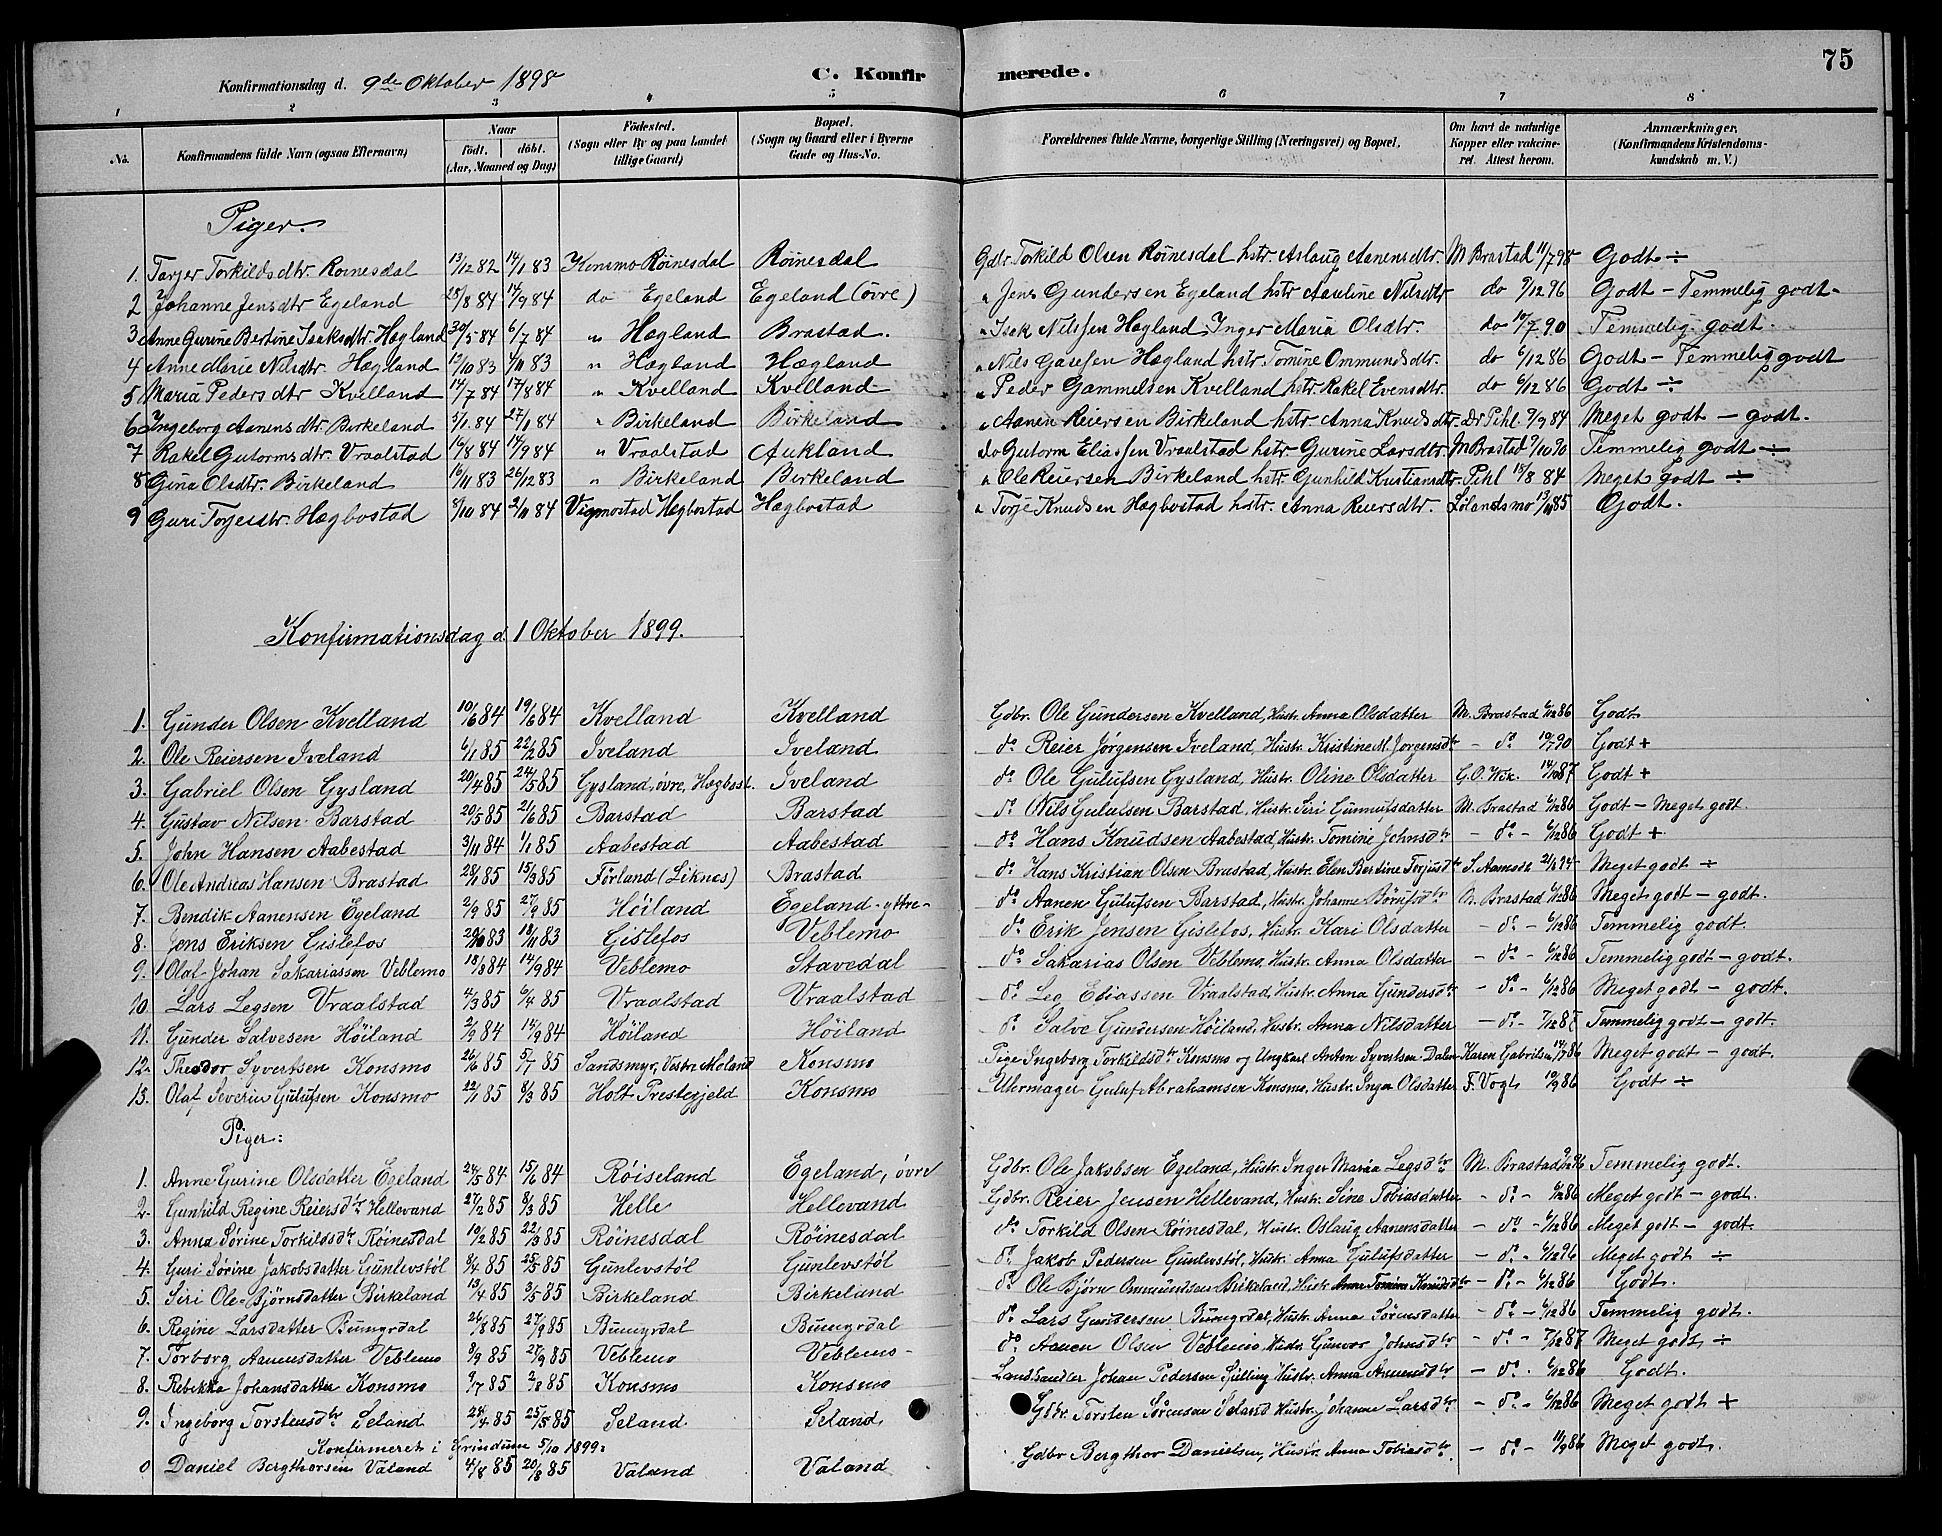 75
Konfirmationsdag d. 9de Oktober 1898
C. Konfirmerede.
1 2 3 4 5 6 7 8
No. Konfirmandens fulde Navn (ogsaa Efternavn) Naar födt. döbt. (Aar, Maaned og Dag) Födested. (Sogn eller By og paa Landet tillige Gaard) Bopæl. (Sogn og Gaard eller i Byerne Gade og Hus-No. Forældrenes fulde Navne, borgerlige Stilling (Næringsvei) og Bopæl. Om havt de naturlige Kopper eller vakcineret. Attest herom. Anmærkninger, (Konfirmandens Kristendomskundskab m. V.)
Piger.
1. Tarjer Torkildsdtr. Roinesdal 13/12 82 14/1 83 Konsmo Röinesdal Röinesdal Gdbr. Torkild Olsen Röinesdal hstr. Aslaug Aanensdtr. M Brastad Godt ÷
2 Johanne Jensdtr Egeland 25/8 84 14/9 84 do Egeland Egeland (övre) " Jens Gundersen Egeland hstr Aaseline Nilsdtr do 9/12 96 Godt - Temmelig godt-
3 Anne Gurine Bertine Isaksdtr. Hægland 30/5 84 6/7 84 " Hægland Brastad. " Isak Nilssen Hægland Inger Maria Olsdtr. do 10/7 90 Temmelig godt.
4 Anne Marie Nilsdtr. Hægland 12/10 83 4/11 83 " Hægland Hægland " Nils Gasessen Hægland hstr. Tomine Ommundsdtr. do 6/12 86 Godt - Temmelig godt
5 Maria Pedersdtr Kvelland 14/7 84 17/8 84 " Kvelland Kvelland " Peder Gammelsen Kvelland hstr. Rakel Evensdtr. do 6/12 86 Godt ÷
6 Ingeborg Aanensdtr. Birkeland 5/1 84 27/1 84 " Birkeland Birkeland " Aanen Reiersen Birkeland hstr. Anna Knudsdtr. Dr Pihl 9/9 84 Meget godt - godt.
7 Rakel Gutormsdtr. Vraalstad 16/8 84 14/9 84 " Vraalstad Aukland do Gutorm Eliassen Vraalstad hstr. Gurine Larsdtr. M Brastad 9/10 90 Temmelig godt ÷
8 Gina Olsdtr. Birkeland 16/11 83 26/12 83 " Birkeland Birkeland " Ole Reiersen Birkeland hstr. Gunhild Kristiansdtr. Pihl 18/8 84 Meget godt ÷
9 Guri Torjesdtr. Hægbostad 8/10 84 2/11 84 Vigmostad Hægbostad Hægbostad " Torje Knudsen Hægbostad hstr. Anna Reiersdtr. Lölandsmo 13/11 85 Godt.
Konfirmationsdag d. 1 Oktober 1899.
1. Gunder Olsen Kvelland 10/6 84 19/6 84 Kvelland Kvelland Gdbr. Ole Gundersen Kvelland, Hustr. Anna Olsdatter M. Brastad 6/12 86 Godt
2. Ole Reiersen Iveland 6/1 85 22/2 85 Iveland Iveland do Reier Jörgensen Iveland, Hustr. Kristine M. Jorgensdtr - do 10/7 90 Godt +
3. Gabriel Olsen Gysland 20/4 85 24/5 85 Gysland, övre, Hægbost. Iveland do Ole Gulufsen Gysland, Hustr. Oline Olsdatter G.O. Wik. 14/10 87 Godt +
4. Gustav Nilsen Barstad 20/5 85 21/6 85 Barstad Barstad do Nils Gulufsen Barstad, Hustr. Siri Gunnufsdatter M. Brastad 6/12 86 Godt - Meget godt.
5. John Hansen Aabestad 3/11 84 1/1 85 Aabestad Aabestad do Hans Knudsen Aabestad, Hustr. Tomine Johnsdtr - do - 6/12 86 Godt +
6. Ole Andreas Hansen Brastad 28/1 85 15/3 85 Förland (Liknes) Brastad do Hans Kristian Olsen Brastad, Hustr. Elen Bertine Torjusdtr S. Aamodt Meget godt ÷
7. Bendik Aanensen Egeland 2/9 85 27/9 85 Höiland Egeland - yttre- do Aanen Gulufsen Barstad, Hustr. Johanne Börufsdtr M. Brastad 6/12 86 Meget godt - godt.
8. Jens Eriksen Gislefos 29/10 83 18/11 83 Gislefos Veblemo do Erik Jensen Gislefos, Hustr. Kari Olsdatter - do - 6/12 86 Temmelig godt.
9. Olaf Johan Sakariassen Veblemo 18/8 84 14/9 84 Veblemo Stavedal do Sakarias Olsen Veblemo, Hustr. Anna Olsdatter - do - 6/12 86 Temmelig godt - godt.
10. Lars Legsen Vraalstad 4/3 85 6/4 85 Vraalstad Vraalstad do Leg Eliassen Vraalstad, Hustr. Anna Gundersdtr - do - 6/12 86 Meget godt - godt.
11. Gunder Salvesen Höiland 2/9 84 14/9 84 Höiland Höiland do Salve Gundersen Höiland, Hustr. Anna Nilsdatter - do - 7/12 87 Temmelig godt - godt.
12. Theodor Syvertsen Konsmo 26/6 85 5/7 85 Sandsmyr, Vestre Moland Konsmo Pige Ingeborg Torkildsdtr Konsmo og Ungkarl Anton Syvertsen Dalen Karen Gabrielsen 14/7 86 Meget godt - godt.
13. Olaf Severin Gulufsen Konsmo 22/1 85 8/3 85 Holt Prestegjeld Konsmo Uhrmager Guluf Abrahamsen Konsmo, Hustr. Inger Olsdatter F. Vogt 10/9 86 Godt ÷
Piger:
1. Anne Gurine Olsdatter Egeland 24/5 84 15/6 84 Röiseland Egeland, övre Gdbr. Ole Jakobsen Egeland, Hustr. Inger Maria Legsdtr M. Brastad Temmelig godt.
2. Gunhild Regine Reiersdtr Hellevand 27/2 85 8/3 85 Helle Hellevand Gdbr. Reier Jensen Hellevand, Hustr. Sine Tobiasdatter - do - 6/12 86 Meget godt - godt.
3. Anna Sörine Torkildsdtr Röinesdal 10/2 85 22/3 85 Röinesdal Röinesdal do Torkild Olsen Röinesdal, Hustr. Oslaug Aanensdatter - do - 6/12 86 Meget godt - godt.
4. Guri Sörine Jakobsdatter Gunlevstöl 8/4 85 25/5 85 Gunlevstöl Gunlevstöl do Jakob Pedersen Gunlevstöl, Hustr. Anna Gulufsdatter - do - Meget godt ÷
5. Siri Ole-Björnsdatter Birkeland 13/4 85 3/5 85 Birkeland Birkeland do Ole Björn Ommundsen Birkeland, Hustr. Anne Tomine Knudsdtr - do - 6/12 86 Godt.
6. Regine Larsdatter Buungrdal 26/8 85 27/9 85 Buungrdal Buungrdal do Lars Gundersen Buungrdal, Hustr. Anna Sörensdatter - do - 6/12 86 Temmelig godt.
7. Torborg Aanensdatter Veblemo 8/9 85 27/9 85 Veblemo Veblemo - do Aanen Olsen Veblemo, Hustr. Gunvor Johnsdtr - do - 7/12 87 Meget godt ÷
8. Rebekka Johansdatter Konsmo 9/7 85 2/8 85 Konsmo Konsmo Landhandler Johan Pedersen Spilling Hustr. Anna Aanensdtr - do - 6/12 86 Godt.
9. Ingeborg Torstensdtr Seland 28/4 85 25/5 85 Seland Seland Gdbr. Torsten Sörensen Seland Hustr. Johanne Larsdtr - do - 6/12 86 Meget godt +
Konfirmeret i Grindum 5/10 1899:
0 Daniel Bergthorsen Valand 4/8 85 20/8 85 Valand Valand Gdbr Bergthor Danielsen, Hustr. Anna Tobiasdtr. - do - 11/9 86 Meget godt.